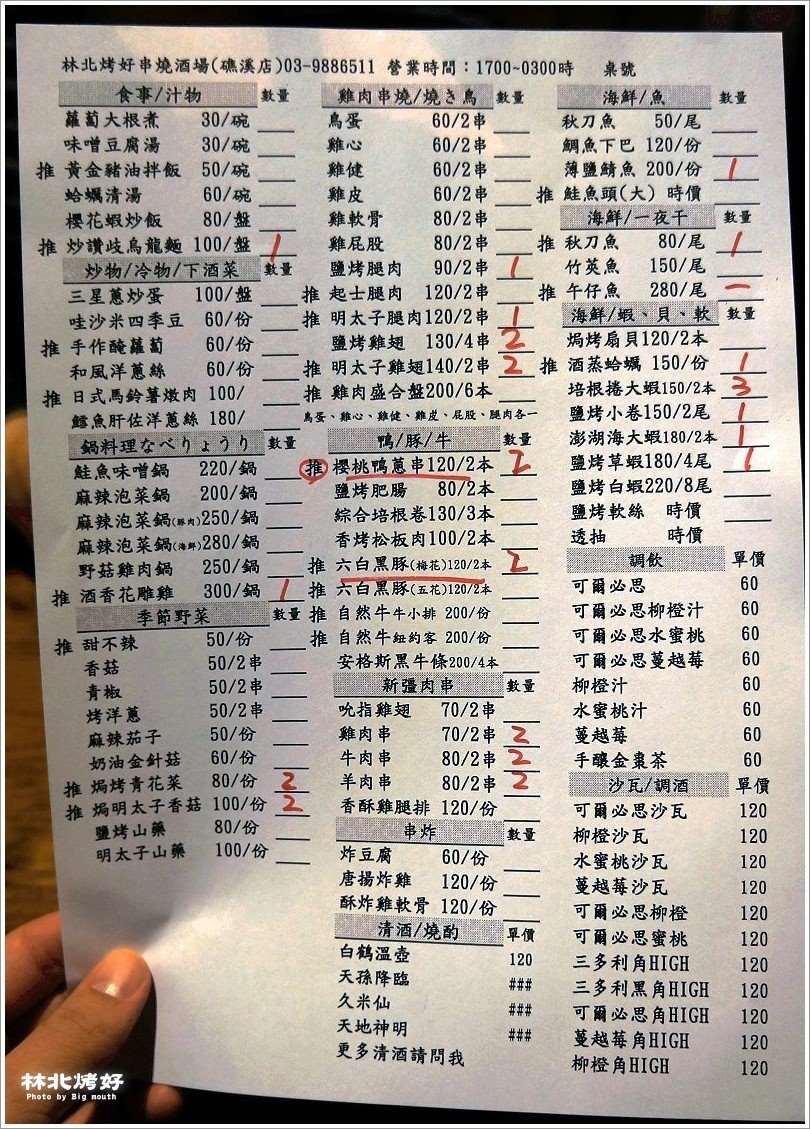 林北烤好串燒酒場(礁溪店)03-9886511 營業時間：1700~0300時 桌號
食事/汁物 數量
蘿蔔大根煮 30/碗
味噌豆腐湯 30/碗
推 黃金豬油拌飯 50/碗
蛤蠣清湯 60/碗
櫻花蝦炒飯 80/盤
推 炒讚歧烏龍麵 100/盤 1
炒物/冷物/下酒菜 數量
三星蔥炒蛋 100/盤
哇沙米四季豆 60/份
推 手作醃蘿蔔 60/份
和風洋蔥絲 60/份
推 日式馬鈴薯燉肉 100/
鱈魚肝佐洋蔥絲 180/
鍋料理なべりょうり 數量
鮭魚味噌鍋 220/鍋
麻辣泡菜鍋 200/鍋
麻辣泡菜鍋(豚肉)250/鍋
麻辣泡菜鍋(海鮮)280/鍋
野菇雞肉鍋 250/鍋
推 酒香花雕雞 300/鍋 1
季節野菜 數量
推 甜不辣 50/份
香菇 50/2串
青椒 50/2串
烤洋蔥 50/2串
麻辣茄子 50/份
奶油金針菇 60/份
推 焗烤青花菜 80/份 2
推 焗明太子香菇 100/份 2
鹽烤山藥 80/份
明太子山藥 100/份
雞肉串燒/燒き鳥 數量
鳥蛋 60/2串
雞心 60/2串
雞健 60/2串
雞皮 60/2串
雞軟骨 80/2串
雞屁股 80/2串
鹽烤腿肉 90/2串 1
推 起士腿肉 120/2串
推 明太子腿肉120/2串 1
鹽烤雞翅 130/4串 2
推 明太子雞翅140/2串 2
推 雞肉盛合盤200/6本
鳥蛋、雞心、雞健、雞皮、屁股、腿肉各一
鴨/豚/牛 數量
推 櫻桃鴨蔥串120/2本 2
鹽烤肥腸 80/2本
綜合培根卷130/3本
香烤松板肉100/2本
推 六白黑豚(梅花)120/2本 2
推 六白黑豚(五花)120/2本
推 自然牛牛小排 200/份
推 自然牛紐約客 200/份
安格斯黑牛條200/4本
新疆肉串 數量
吮指雞翅 70/2串
雞肉串 70/2串 2
牛肉串 80/2串 2
羊肉串 80/2串 2
香酥雞腿排 120/份
串炸 數量
炸豆腐 60/份
唐揚炸雞 120/份
酥炸雞軟骨 120/份
清酒/燒酌 單價
白鶴溫壺 120
天孫降臨 ###
久米仙 ###
天地神明 ###
更多清酒請問我
海鮮/魚 數量
秋刀魚 50/尾
鯛魚下巴 120/份
薄鹽鯖魚 200/份 1
推 鮭魚頭(大) 時價
海鮮/一夜干 數量
推 秋刀魚 80/尾 1
竹莢魚 150/尾
推 午仔魚 280/尾 一
海鮮/蝦、貝、軟 數量
焗烤扇貝120/2本
推 酒蒸蛤蠣 150/份 1
培根捲大蝦150/2本 3
鹽烤小卷150/2尾 1
澎湖海大蝦180/2本 1
鹽烤草蝦180/4尾 1
鹽烤白蝦220/8尾
鹽烤軟絲 時價
透抽 時價
調飲 單價
可爾必思 60
可爾必思柳橙汁 60
可爾必思水蜜桃 60
可爾必思蔓越莓 60
柳橙汁 60
水蜜桃汁 60
蔓越莓 60
手釀金棗茶 60
沙瓦/調酒 單價
可爾必思沙瓦 120
柳橙沙瓦 120
水蜜桃沙瓦 120
蔓越莓沙瓦 120
可爾必思柳橙 120
可爾必思蜜桃 120
三多利角HIGH 120
三多利黑角HIGH 120
可爾必思角HIGH 120
蔓越莓角HIGH 120
柳橙角HIGH 120
林北烤好
Photo by Big mouth